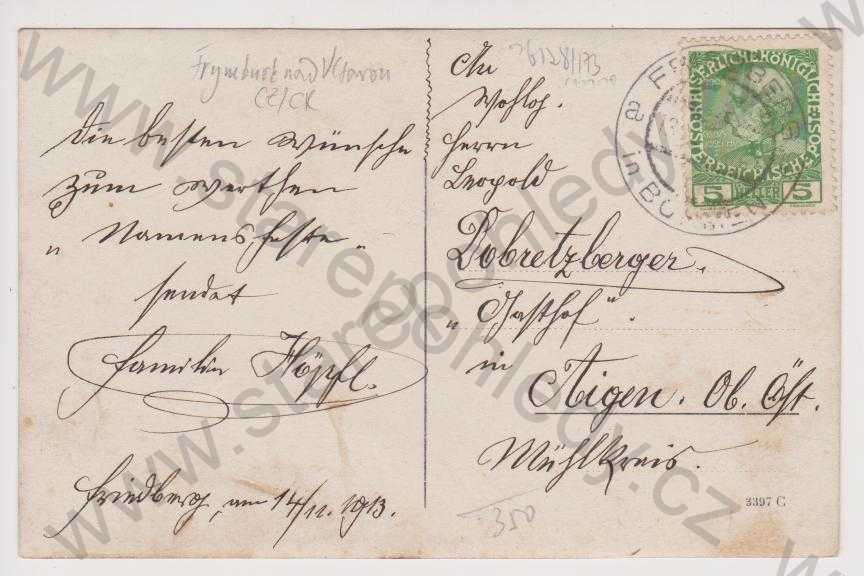 Frymburk nad Vltavou
CZ/CK
Die besten Wünsche
zum werthen
„Namensfeste“
sendet
Familie Höpfl.
Friedberg, am 14/11. 1913.
An
Wohlg.
Herrn
Leopold
Dobretzberger.
„Gasthof“.
in
Aigen. Ob. Öst.
Mühlkreis.
350
3397 C
KAISERLICHE KÖNIGLICHE
ÖSTERREICHISCHE
5 HELLER 5
a
in BÖ
www.starepohledy.cz